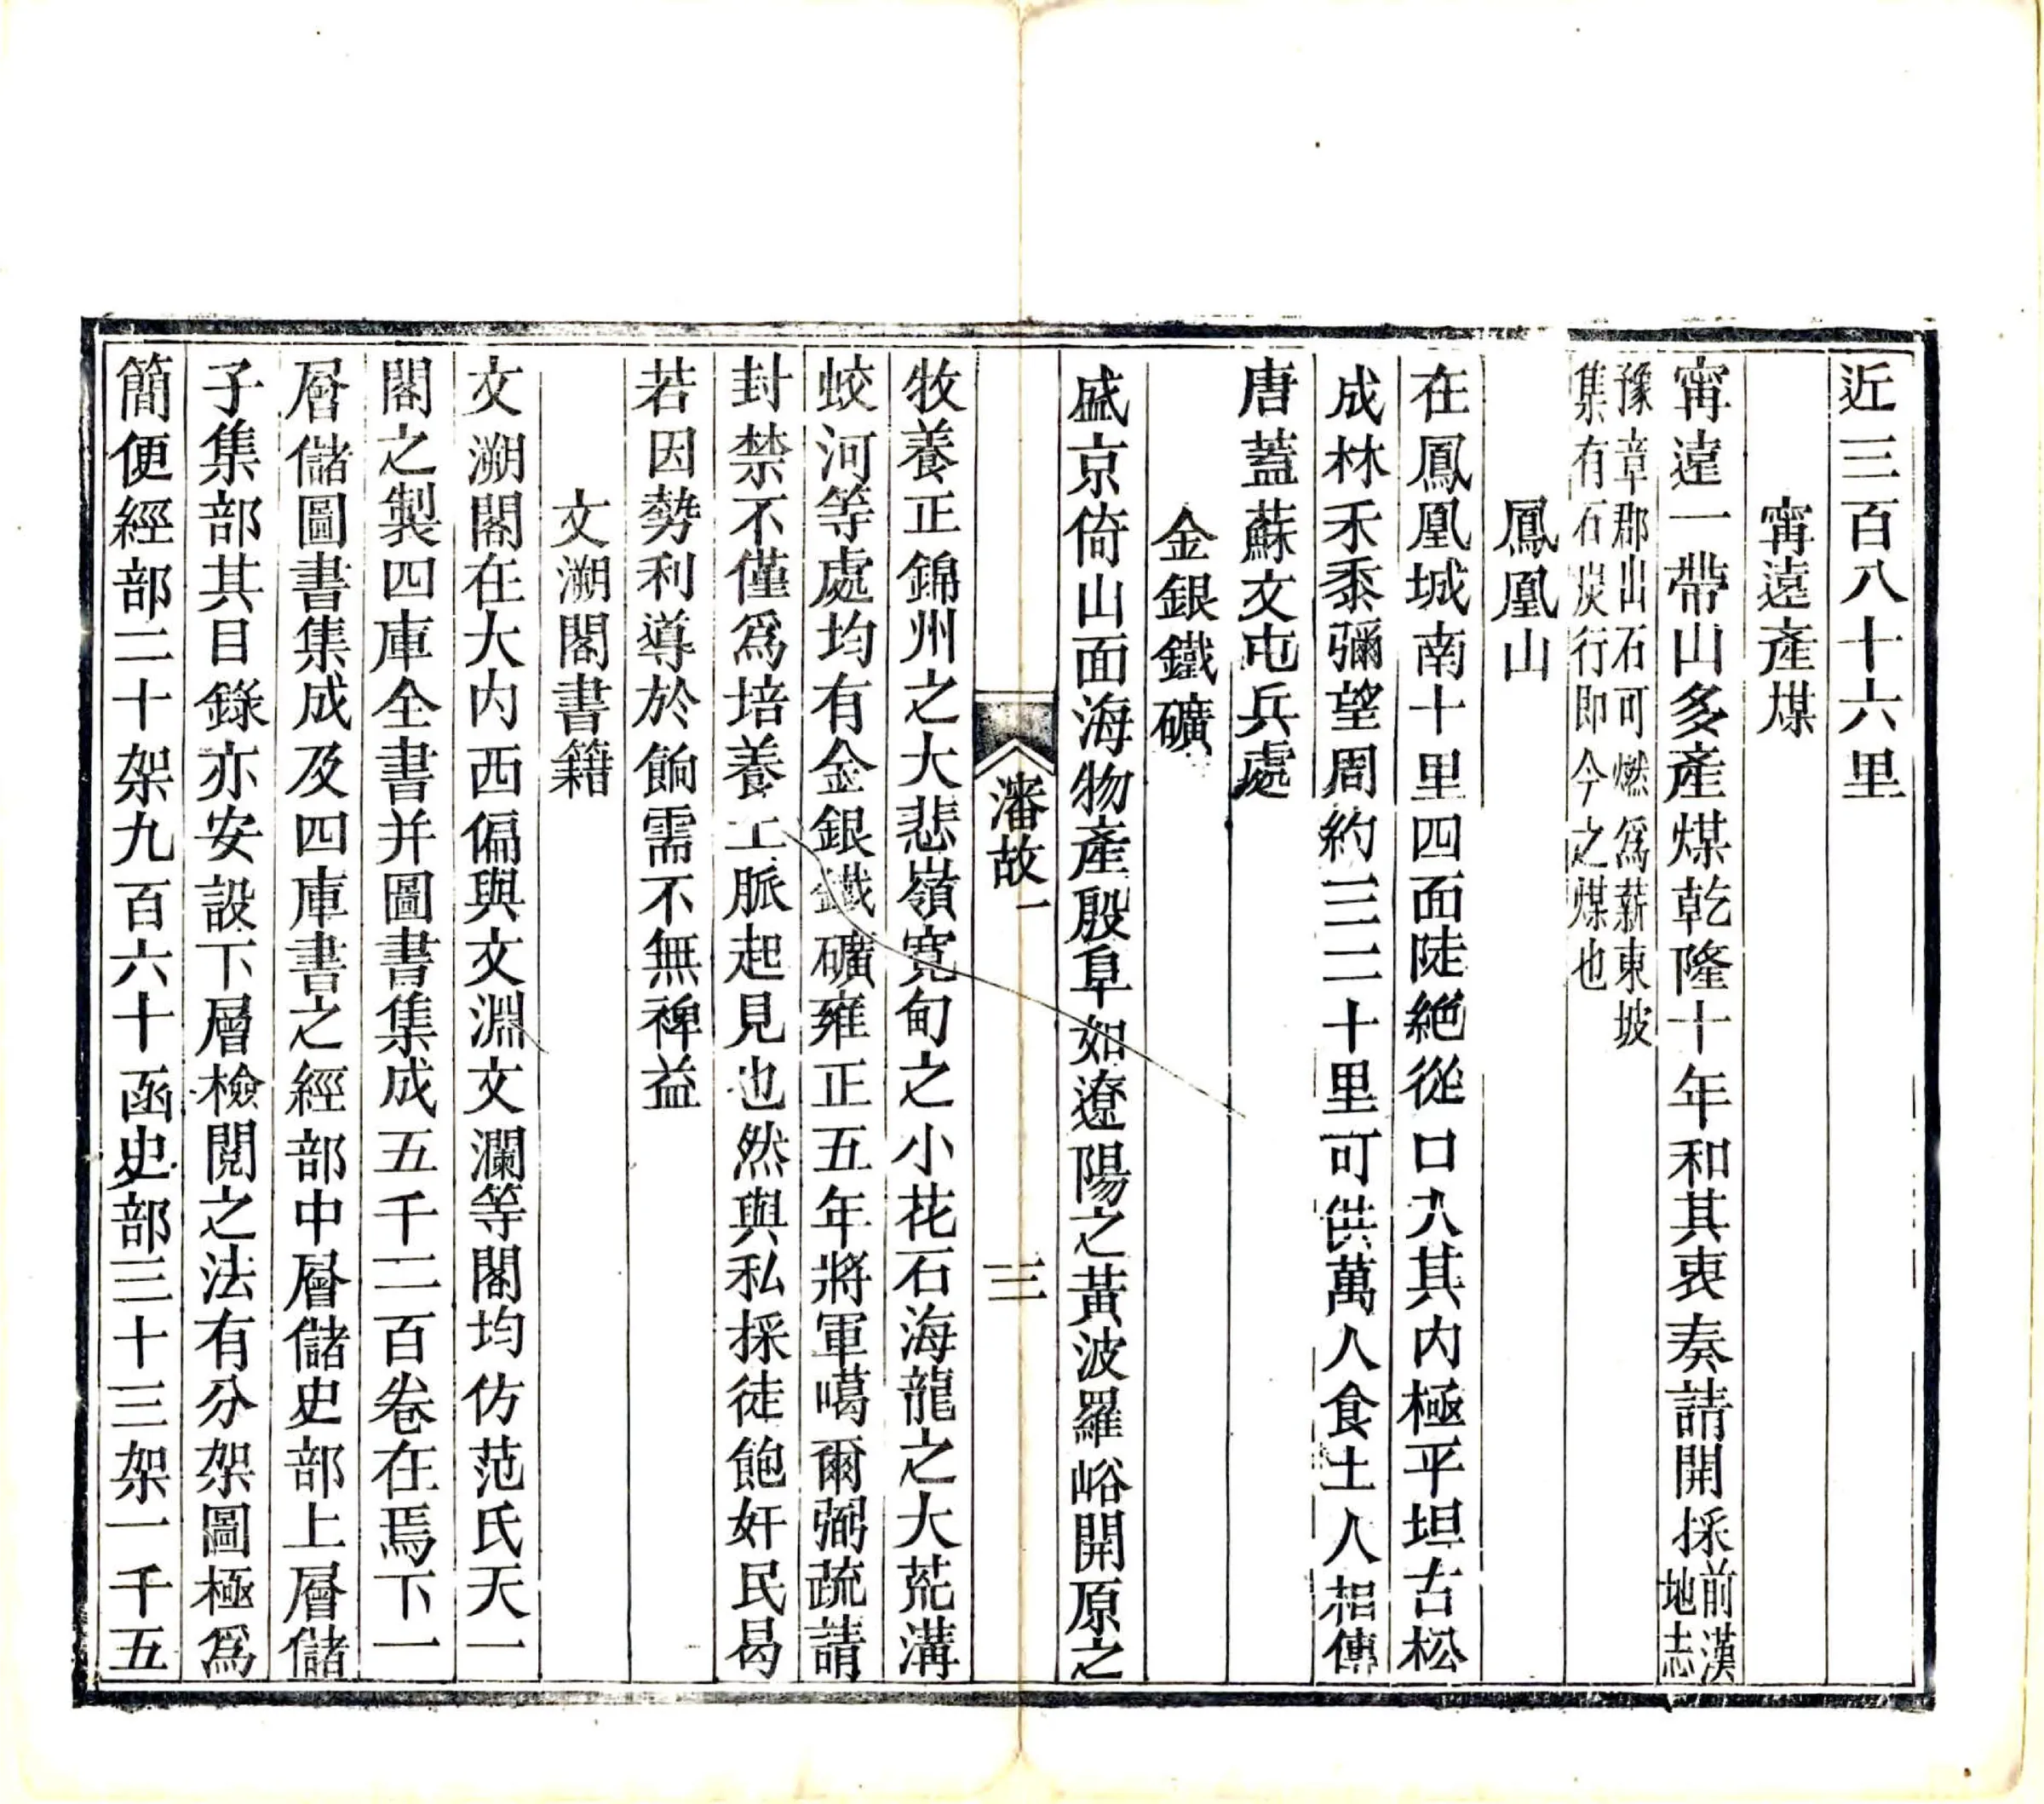 近三百八十六里
甯遠產煤
甯遠一帶山多產煤乾隆十年和其衷奏請開採前漢地志
豫章郡山石可燃爲薪東坡
集有石炭行即今之煤也
鳳凰山
在鳳凰城南十里四面陡絕從口入其內極平坦古松
成林禾黍彌望周約三二十里可供萬人食土人相傳
唐蓋蘇文屯兵處
金銀鐵礦
盛京倚山面海物產殷阜如遼陽之黃波羅峪開原之
瀋故一
三
牧養正錦州之大悲嶺寬甸之小花石海龍之大荒溝
蛟河等處均有金銀鐵礦雍正五年將軍噶爾弼疏請
封禁不僅爲培養土脈起見也然與私採徒飽奸民曷
若因勢利導於餉需不無裨益
文溯閣書籍
文溯閣在大內西偏與文淵文瀾等閣均仿范氏天一
閣之製四庫全書并圖書集成五千二百卷在焉下一
層儲圖書集成及四庫書之經部中層儲史部上層儲
子集部其目錄亦安設下層檢閱之法有分架圖極爲
簡便經部二十架九百六十函史部三十三架一千五